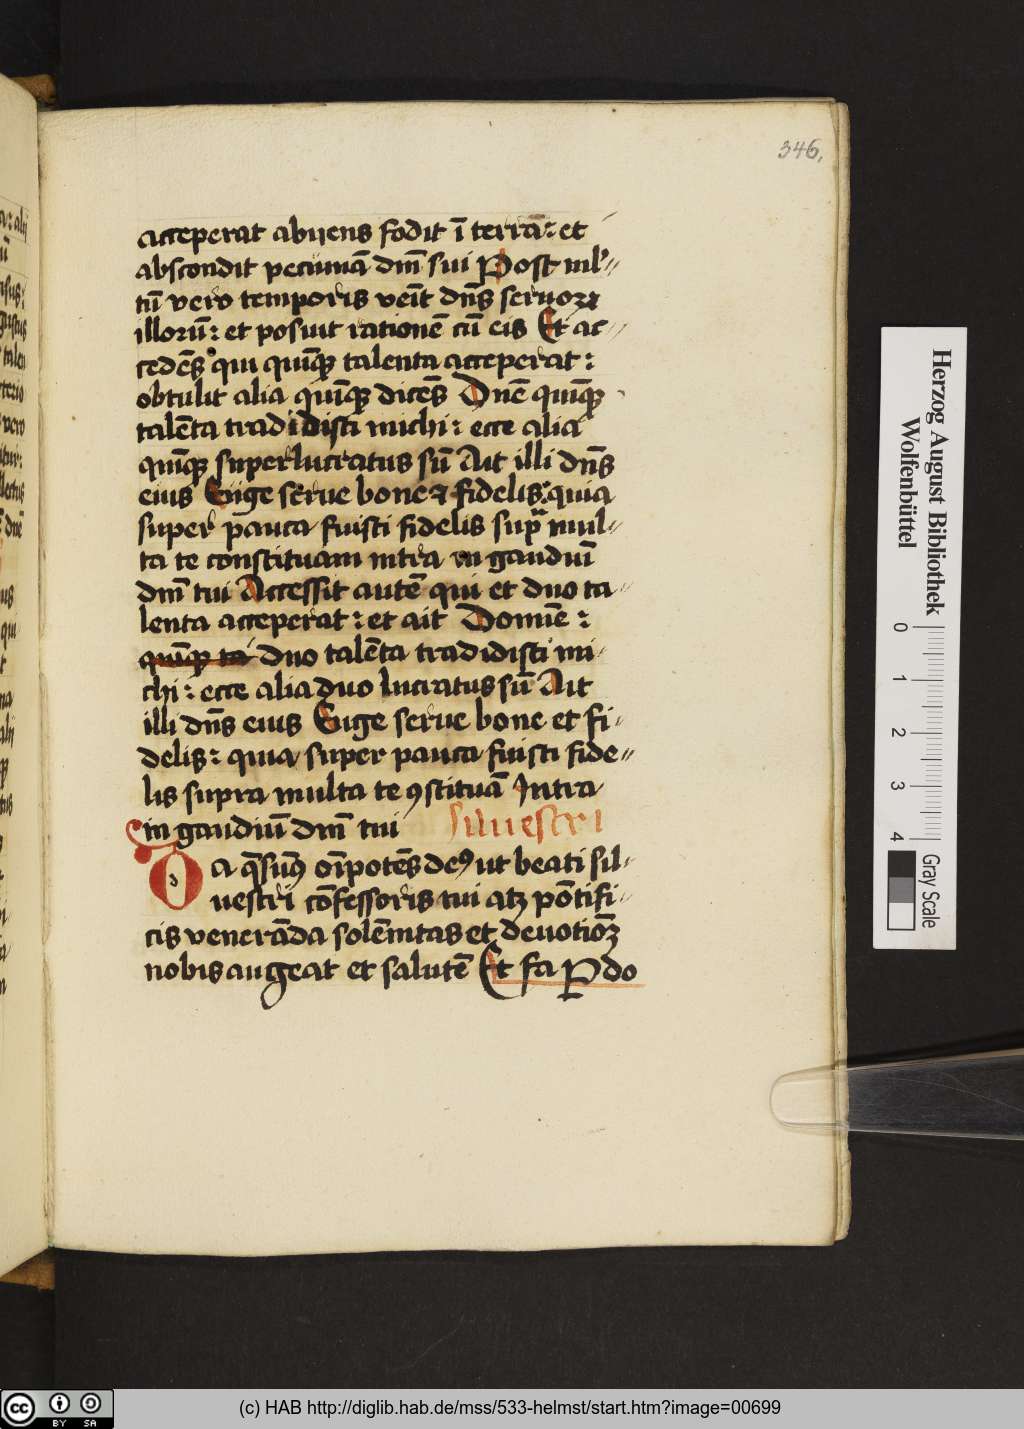 346.
acceperat abyens fodit ī terrā: et
abscondit pecuniā dn̄i sui Post ml'//
tū vero temporis veīt dn̄s seruoꝝ
illorū: et posuit rationē cū eis Et ac//
cedēs qui quīqꝫ talenta acceperat:
obtulit alia quīqꝫ dicēs Dn̄e quīqꝫ
talēta tradidisti michi: ecce alia
quīqꝫ superlucratus sū Ait illi dn̄s
eius Euge serue bone ⁊ fidelis: quia
super pauca fuisti fidelis supᷓ mul//
ta te constituam intra in gaudiū
dn̄i tui Accessit autē qui et duo ta
lenta acceperat: et ait Domie:
quīqꝫ ta duo talēta tradidisti mi
chi: ecce alia duo lucratus sū Ait
illi dn̄s eius Euge serue bone et fi
delis: quia super pauca fuisti fide//
lis supra multa te ꝯstituā Intra
in gaudiū dn̄i tui Siluestri
Da q̄sumꝰ oīpotēs deꝰ ut beati sil//
uestri cōfessoris tui atqꝫ pōtifi//
cis venerāda solēnitas et deuotiōꝫ
nobis augeat et salutē Et fa P do
Herzog August Bibliothek
Wolfenbüttel
0
1
2
3
4
Gray Scale
(c) HAB http://diglib.hab.de/mss/533-helmst/start.htm?image=00699
cc BY SA